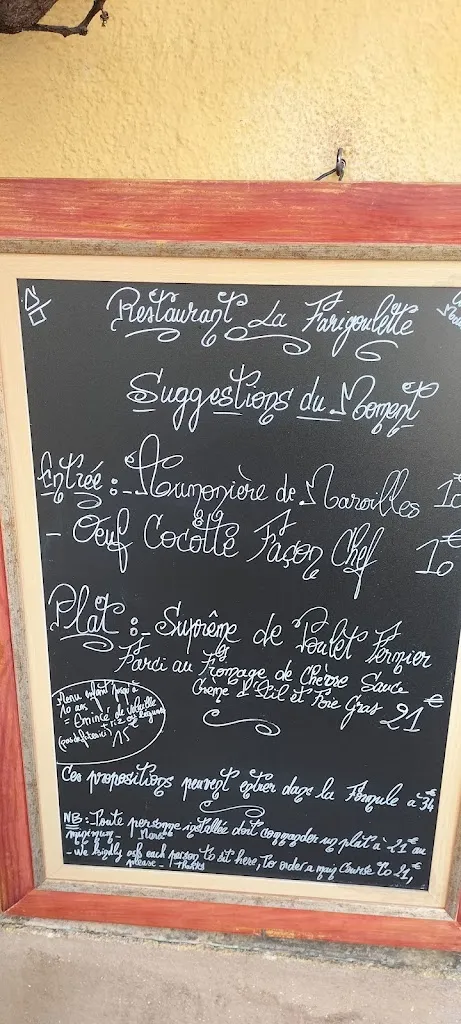 Restaurant La Farigoulette
Suggestions du Moment
Entrée :- Aumonière de Maroilles 10
- Oeuf Cocotte Façon Chef 10€
Plat :- Suprême de Poulet Fermier
Farci au Fromage de Chèvre Sauce
Crème d'Ail et Foie Gras 21€
Menu enfant jusqu'à
10 ans
= Emincé de volaille
riz ou légumes
15€
Ces propositions peuvent entrer dans la Formule à 34€
NB : Toute personne installée doit commander un plat à 21€ au
minimum - Merci
- We kindly ask each person to sit here, to order a main course to 21€
please - thanks